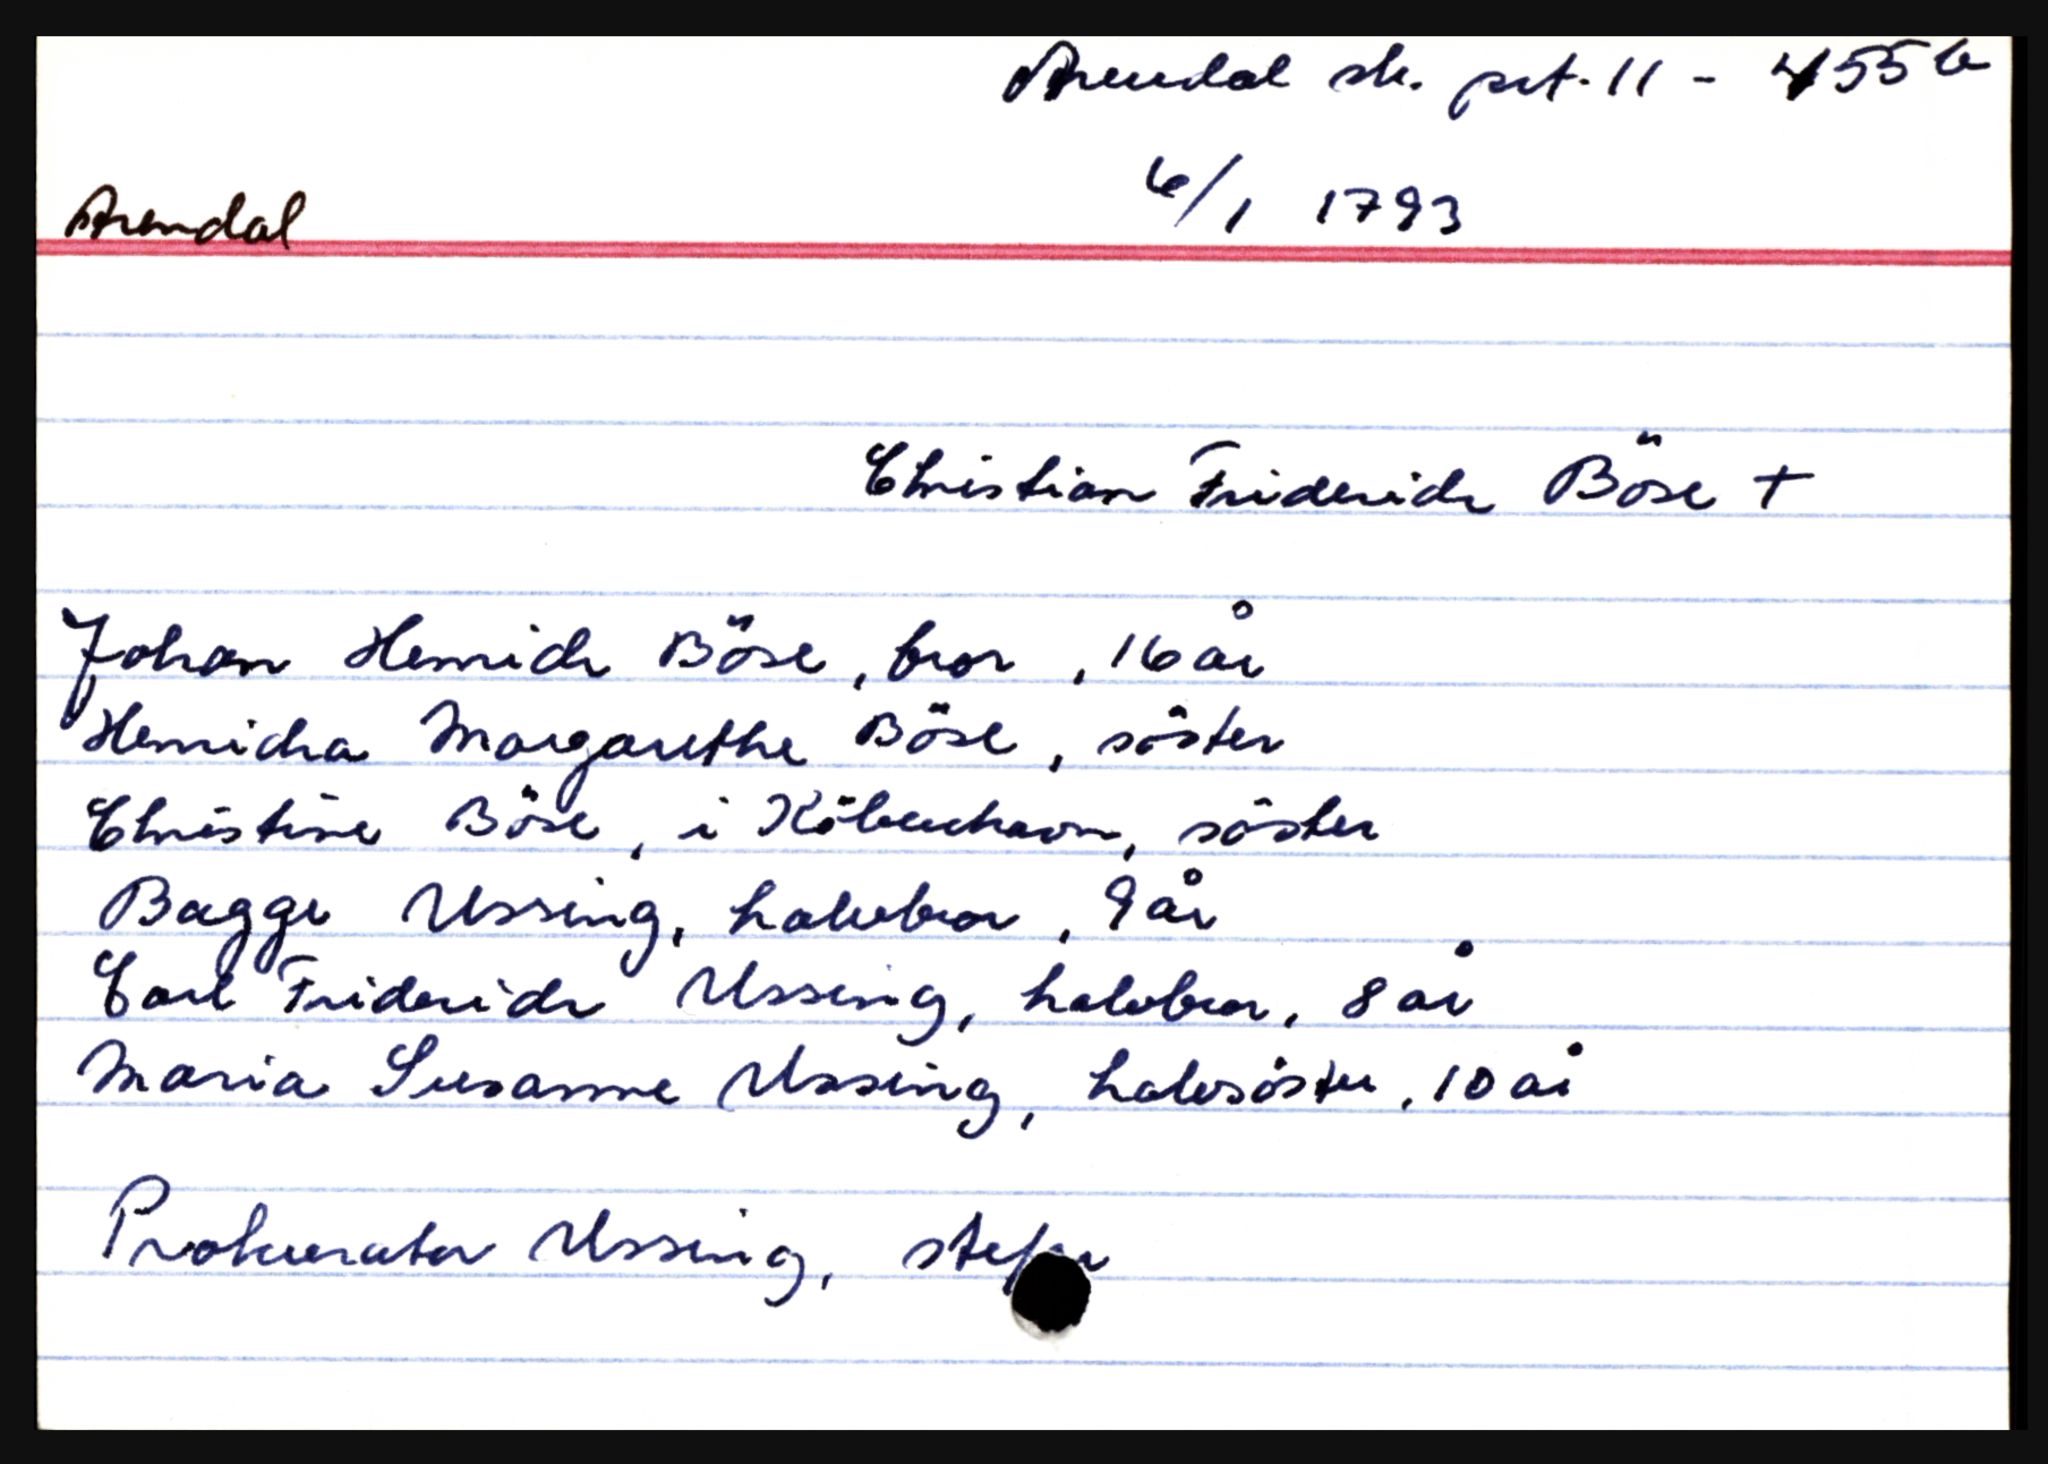 Arendal sk. prt. 11 - 455 b
6/1 1793
Arendal
Christian Friderich Böse +
Johan Henrich Böse, bror, 16 år
Henricha Margarethe Böse, söster
Christine Böse, i Köbenhavn, söster
Bagge Ussing, halvbror, 9 år
Carl Friderich Ussing, halvbror, 8 år
Maria Susanne Ussing, halvsöster, 10 år
Prokurator Ussing,